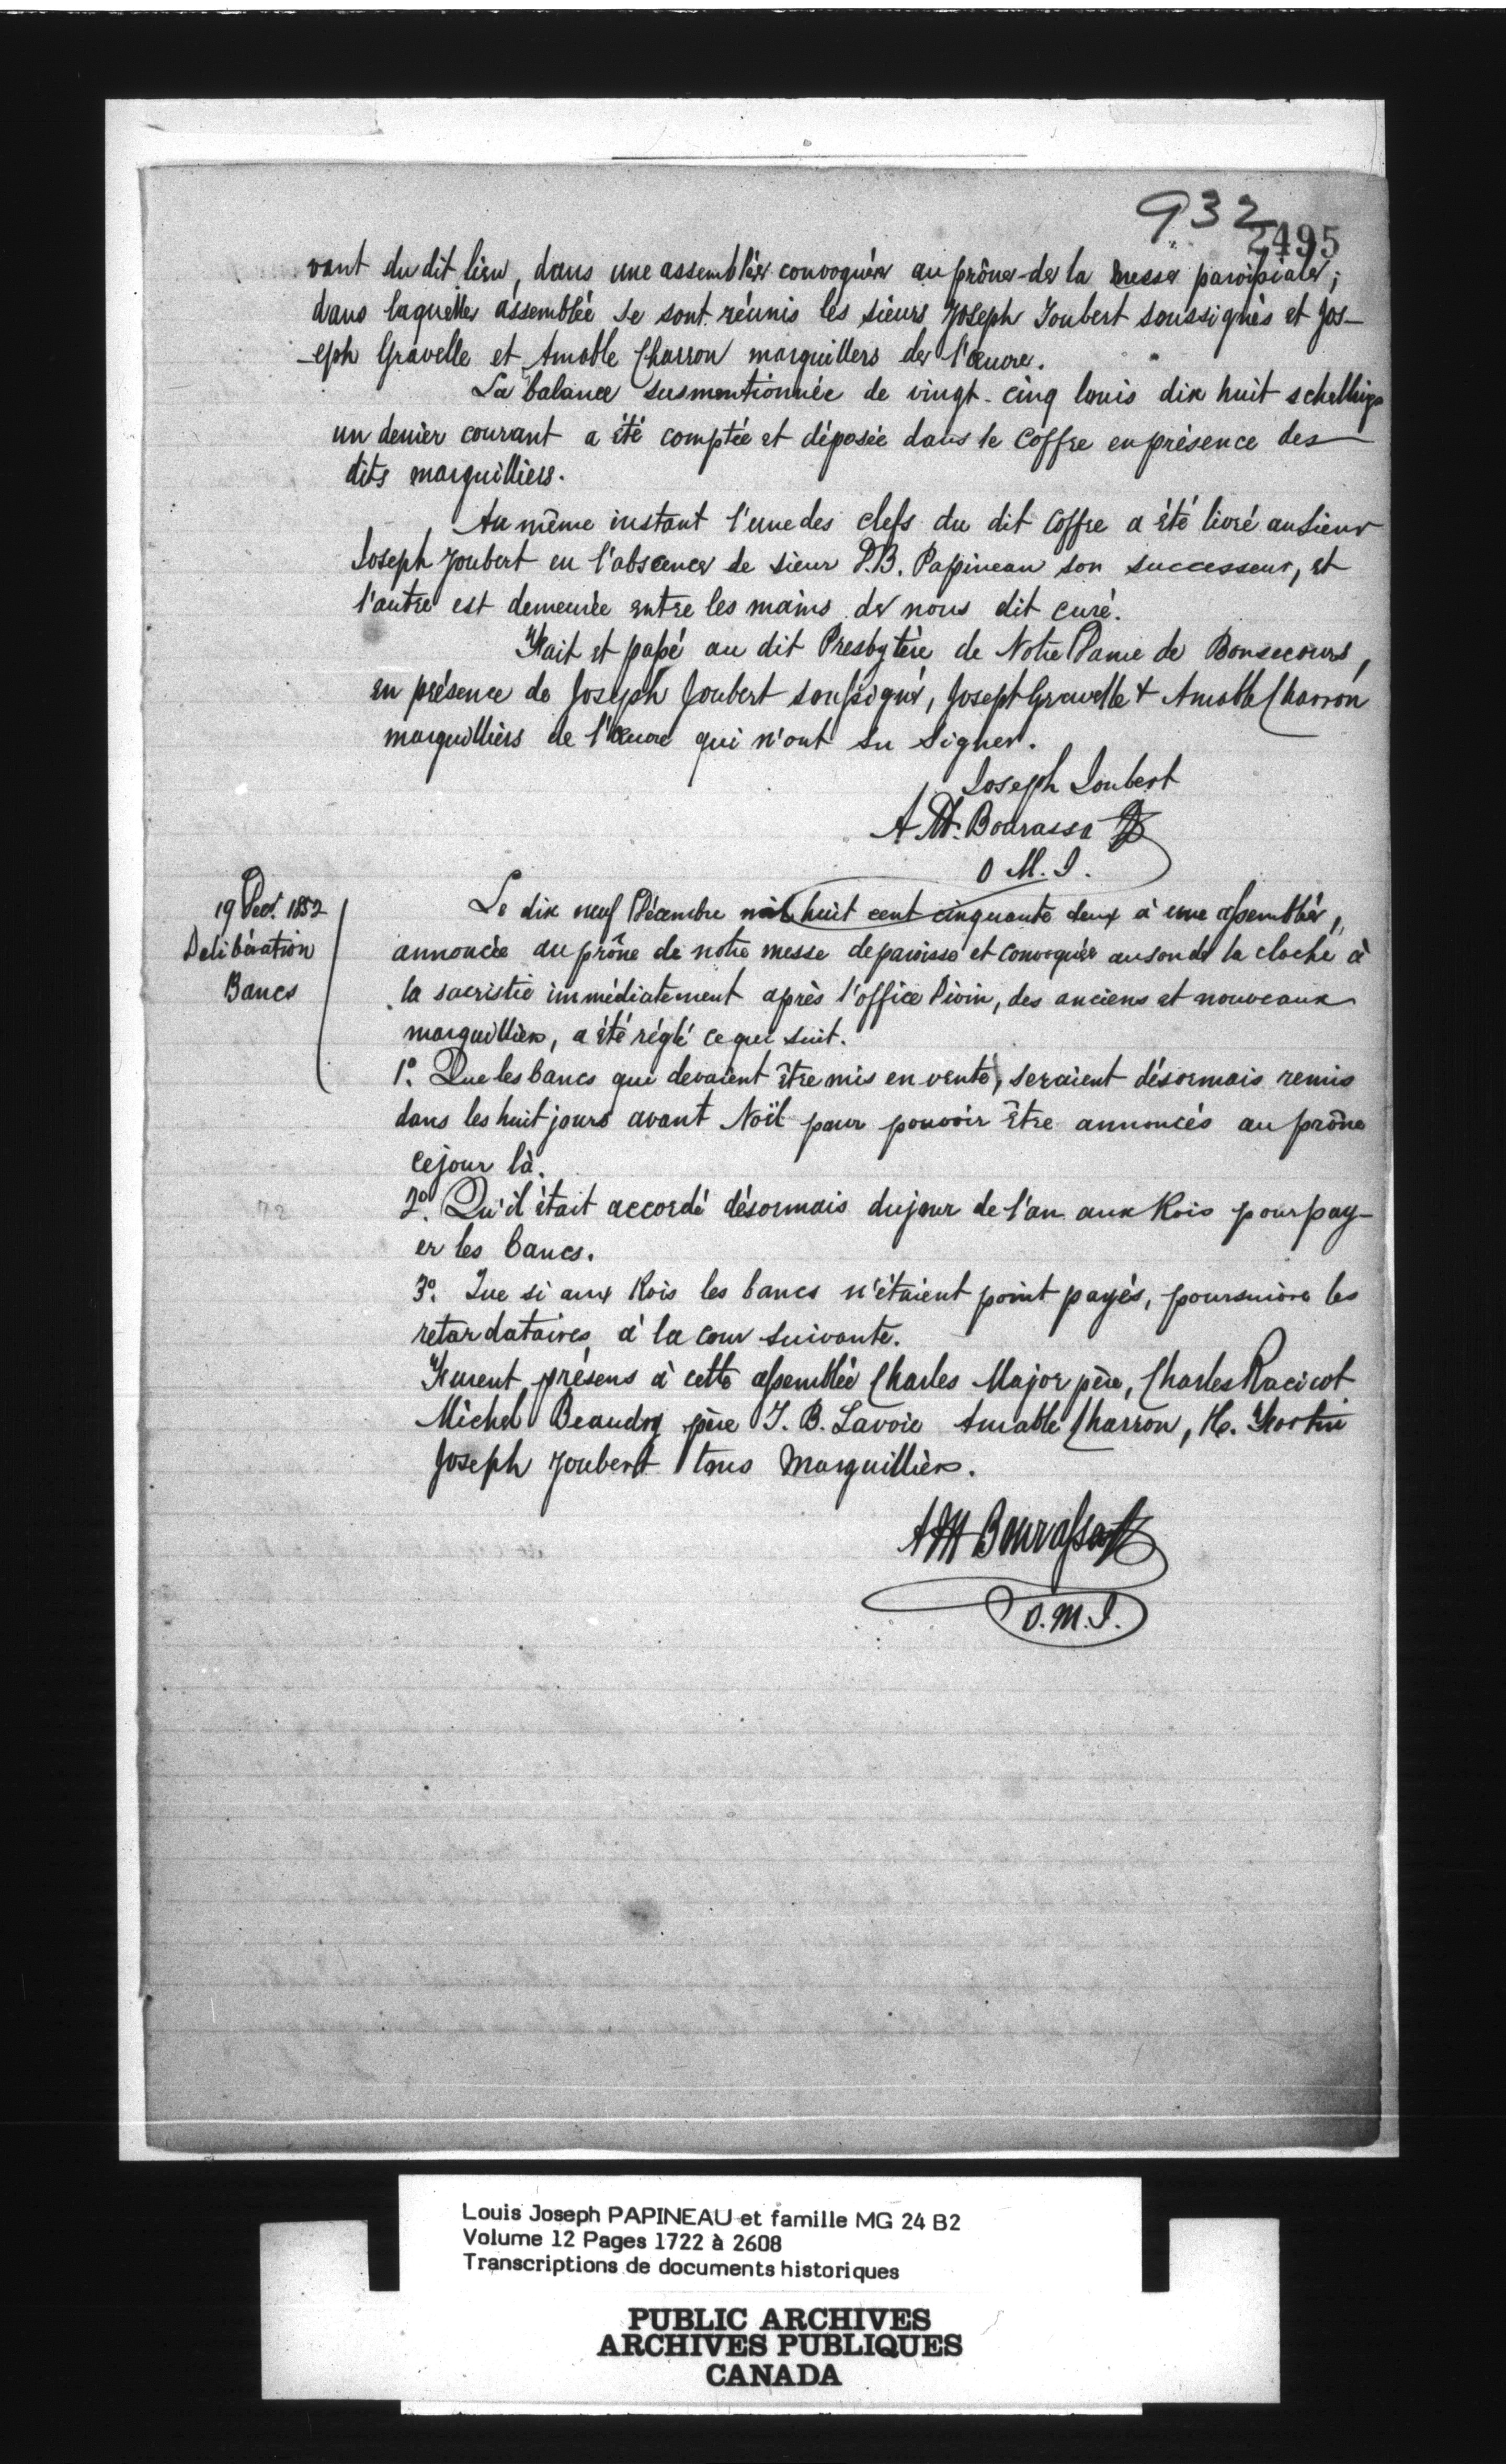 932
2495
vant du dit lieu, dans une assemblée convoquée au prône de la messe paroissiale;
dans laquelle assemblée se sont réunis les sieurs Joseph Joubert soussignés et Jos-
-eph Gravelle et Amable Charron marguillers de l'œuvre.
La balance susmentionnée de vingt-cinq louis dix huit schellings
un denier courant a été comptée et déposée dans le Coffre en présence des
dits marguilliers.
Au même instant l'une des clefs du dit Coffre a été livré au Sieur
Joseph Joubert en l'absence de sieur D.B. Papineau son successeur, et
l'autre est demeurée entre les mains de nous dit curé.
Fait et passé au dit Presbytère de Notre Dame de Bonsecours,
en présence de Joseph Joubert soussigné, Joseph Gravelle & Amable Charron
marguilliers de l'œuvre qui n'ont su signer.
Joseph Joubert
A. M. Bourassa
O M. I.
19 Dec. 1852
Délibération
Bancs
Le dix neuf Décembre mil huit cent cinquante deux à une assemblée,
annoncée au prône de notre messe de paroisse et convoquée au son de la cloche à
la sacristie immédiatement après l'office Divin, des anciens et nouveaux
marguilliers, a été réglé ce qui suit.
1º. Que les bancs qui devaient être mis en vente, seraient désormais remis
dans les huit jours avant Noël pour pouvoir être annoncés au prône
ce jour là.
2º. Qu'il était accordé désormais du jour de l'an aux Rois pour pay-
er les bancs.
3º. Que si aux Rois les bancs n'étaient point payés, poursuivre les
retardataires à la cour suivante.
Furent présens à cette assemblée Charles Major père, Charles Racicot
Michel Beaudry père J. B. Lavoie Amable Charron, H. Fortin
Joseph Joubert tous Marguilliers.
A M Bourassa
O.M.I.
Louis Joseph PAPINEAU et famille MG 24 B2
Volume 12 Pages 1722 à 2608
Transcriptions de documents historiques
PUBLIC ARCHIVES
ARCHIVES PUBLIQUES
CANADA